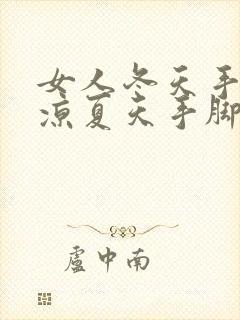 女人冬天手
凉夏天手脚
盧中南